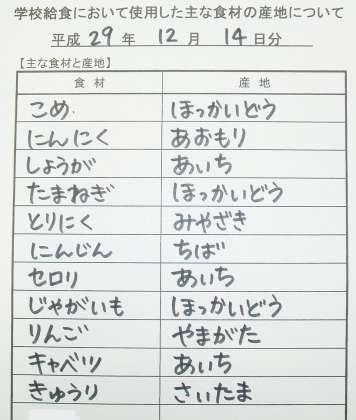 学校給食において使用した主な食材の産地について
平成 29 年 12 月 14 日分
【主な食材と産地】
食材 産地
こめ ほっかいどう
にんにく あおもり
しょうが あいち
たまねぎ ほっかいどう
とりにく みやざき
にんじん ちば
セロリ あいち
じゃがいも ほっかいどう
りんご やまがた
キャベツ あいち
きゅうり さいたま